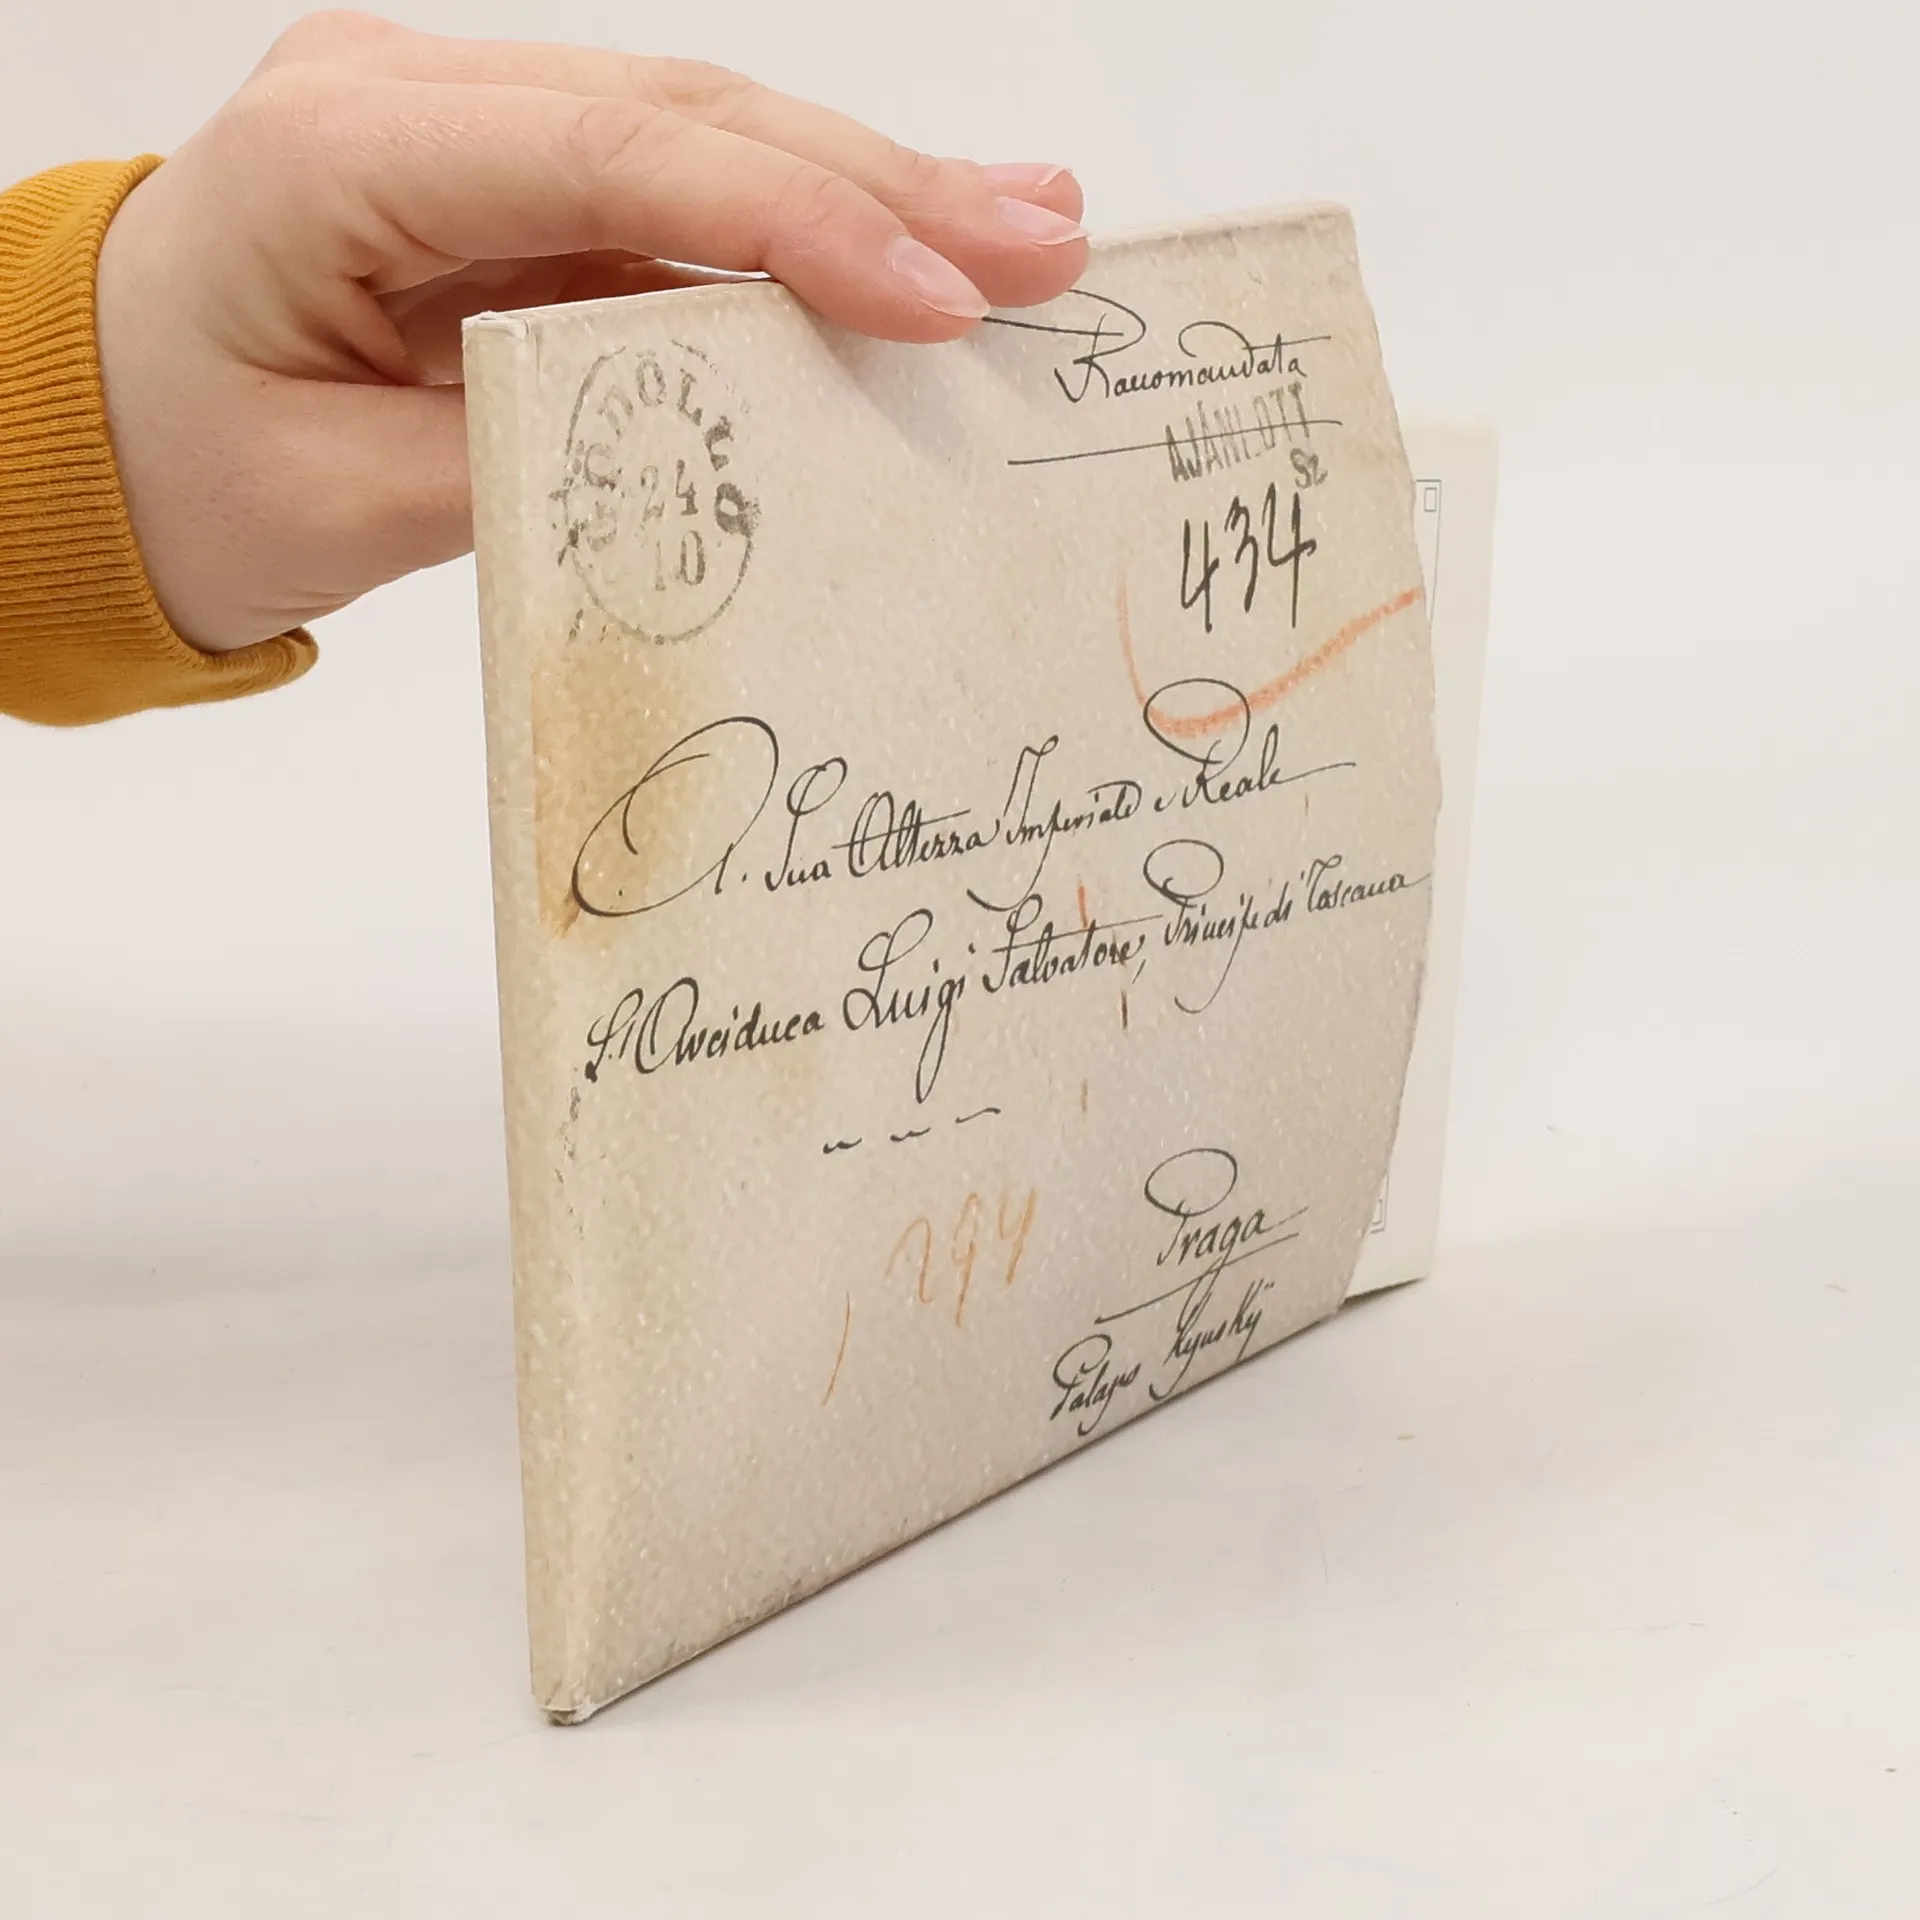 GÖDÖLLŐ
24
10
Raccomandata
AJÁNLOTT
Sz
434
A. Sua Altezza Imperiale e Reale
L'Arciduca Luigi Salvatore, Principe di Toscana
294
Praga
Palazzo Kynskÿ